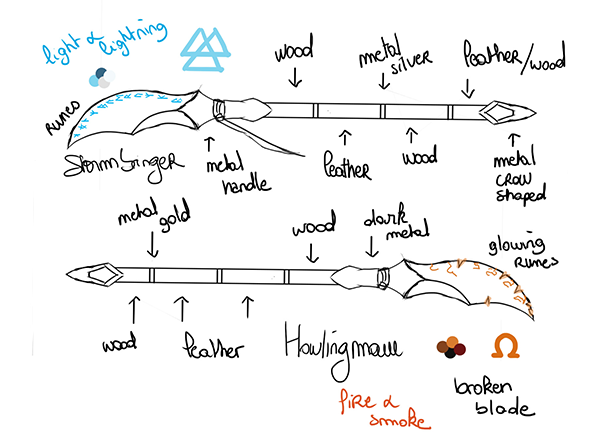 light & lightning
wood
metal silver
leather/wood
Runes
Stormbringer
metal handle
leather
wood
metal crow shaped
metal gold
wood
dark metal
glowing runes
wood
leather
Howlingmaw
Ω
fire & smoke
broken blade